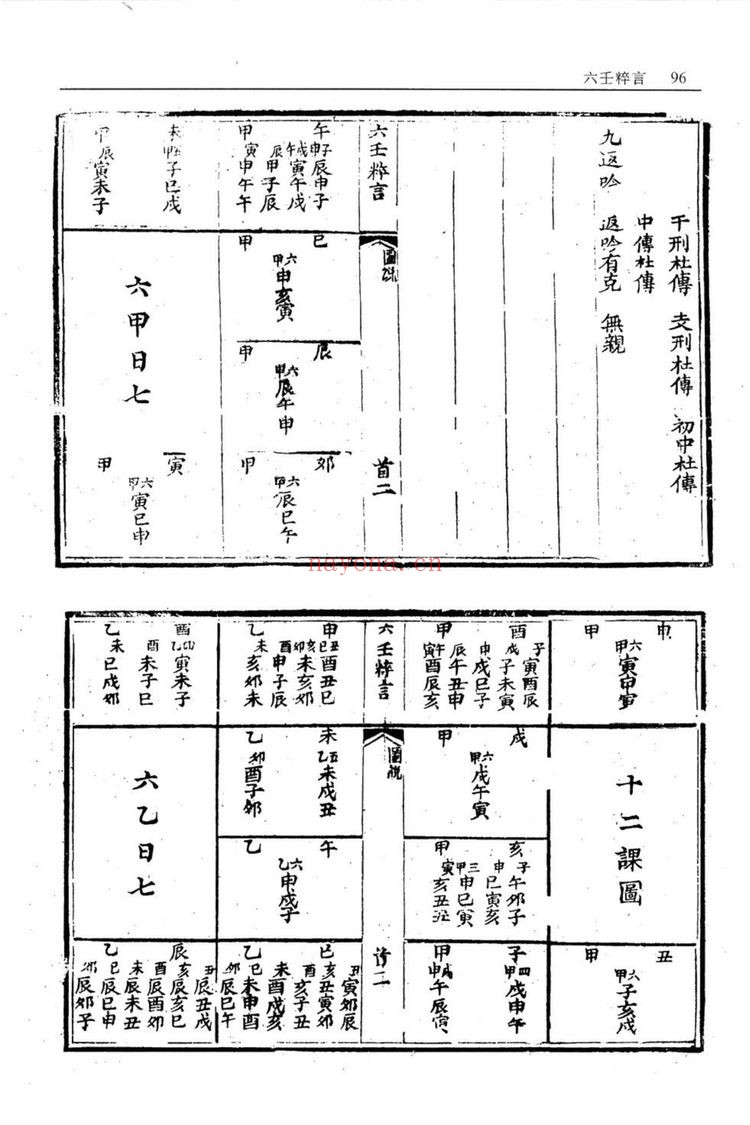 六壬粹言 96
干刑杜傳 支刑杜傳 初中杜傳
中傳杜傳
九返吟 返吟有克 無親
六壬粹言
圖説
首二
午 甲
子辰申子
戌寅午戌
辰 甲子辰
寅申午午
巳 甲
六甲 申亥寅
辰 甲
六甲 辰午申
卯 甲
六甲 辰巳午
未
子巳戌
甲辰寅未子
六甲日七
寅 甲
六甲 寅巳申
申 甲
六甲 寅申寅
十二課圖
丑 甲
六甲 子亥戌
酉 甲
子寅酉辰
戌子未寅
申戌巳子
辰午丑申
寅酉辰亥
戌 甲
六甲 戌午寅
亥 甲
子午卯子
申巳寅亥
三甲 申巳寅
寅亥丑丑
子 甲
四甲 戌申午
申戌午辰寅
六壬粹言
圖説
首二
申 乙
丑酉丑巳
亥未亥卯
酉申子辰
未亥卯未
未 乙
五乙 未戌丑
卯酉子卯
午 乙
六乙 申戌子
巳 乙
丑寅卯辰
亥丑寅卯
酉亥子丑
未酉戌亥
巳未申酉
卯辰巳午
酉 乙
寅未子
酉未子巳
未巳戌卯
六乙日七
辰 乙
丑辰丑戌
亥辰亥巳
酉辰酉卯
未辰未丑
巳辰巳申
卯辰卯子
nayona.cn